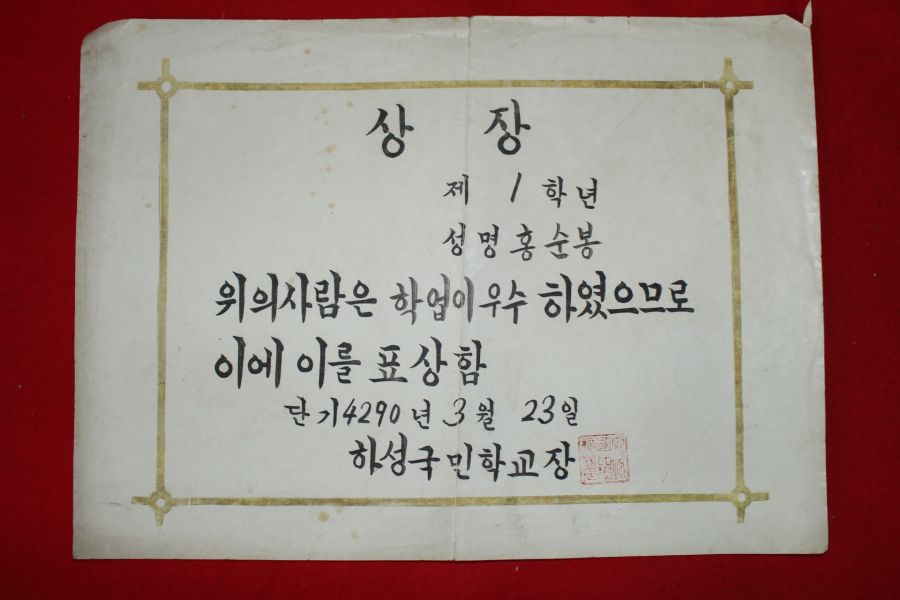 상 장
제 1 학년
성명 홍순봉
위의사람은 학업이 우수 하였으므로
이에 이를 표상함
단기4290년 3월 23일
하성국민학교장